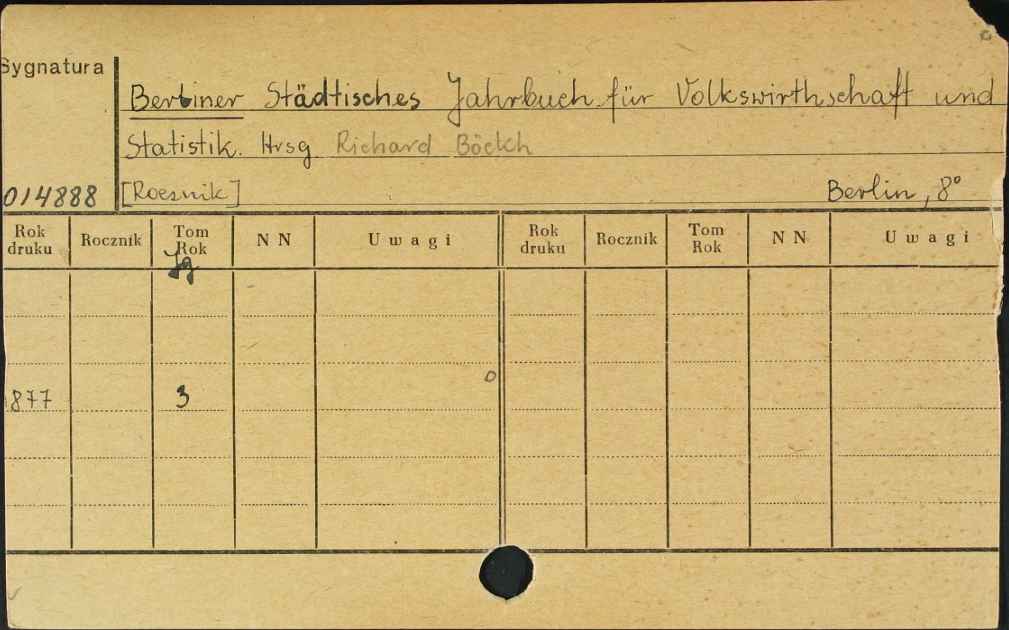 Sygnatura
Berliner Städtisches Jahrbuch für Volkswirthschaft und
Statistik. Hrsg Richard Böckh
014888 [Rocznik] Berlin, 8°
Rok druku Rocznik Tom Rok NN Uwagi Rok druku Rocznik Tom Rok NN Uwagi
Jg
877 3